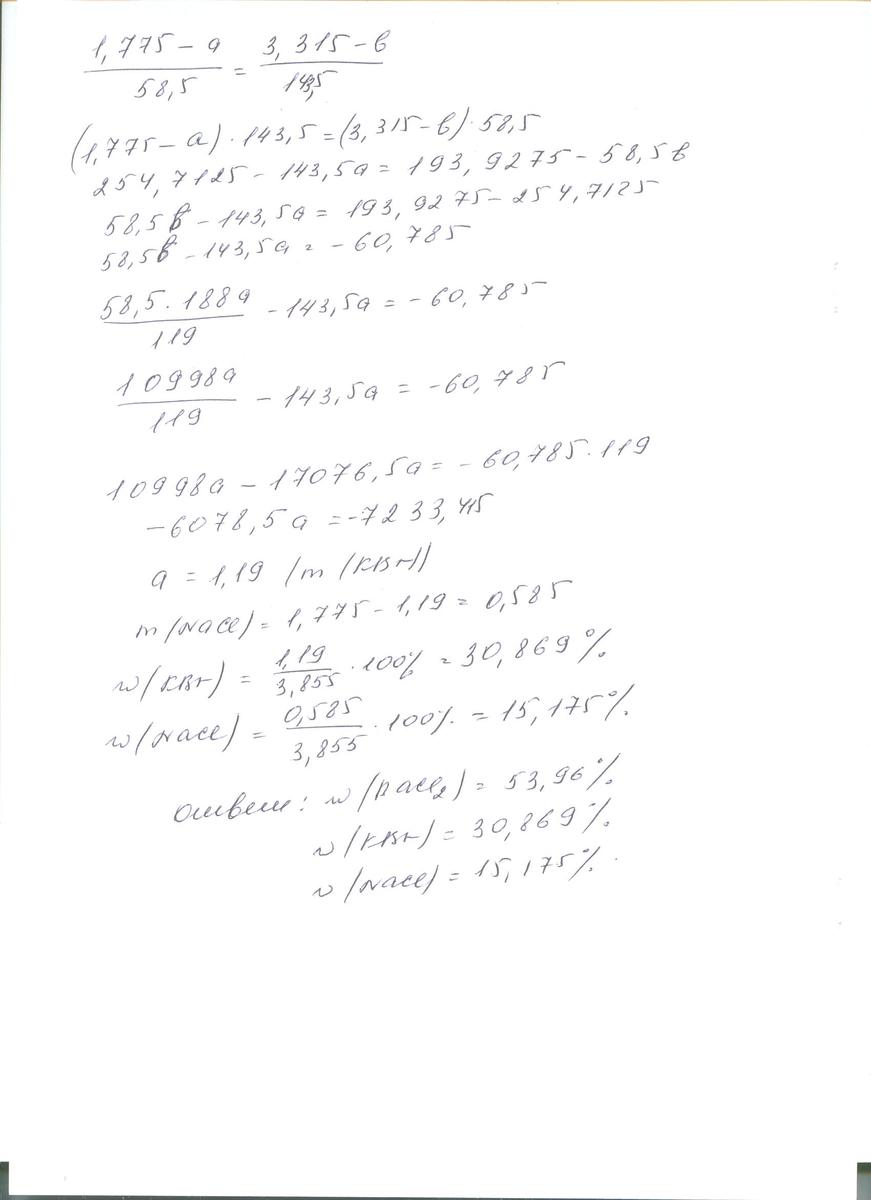 (1,775 - a) / 58,5 = (3,315 - в) / 143,5
(1,775 - a) · 143,5 = (3,315 - в) · 58,5
254,7125 - 143,5a = 193,9275 - 58,5в
58,5в - 143,5a = 193,9275 - 254,7125
58,5в - 143,5a = - 60,785
58,5 · 188a / 119 - 143,5a = - 60,785
10998a / 119 - 143,5a = -60,785
10998a - 17076,5a = - 60,785 · 119
-6078,5a = -7233,415
a = 1,19 (m (KBr))
m(NaCl) = 1,775 - 1,19 = 0,585
w(KBr) = 1,19 / 3,855 · 100% = 30,869%
w(NaCl) = 0,585 / 3,855 · 100% = 15,175%
Ответ: w(BaCl₂) = 53,96%
w(KBr) = 30,869%
w(NaCl) = 15,175%.